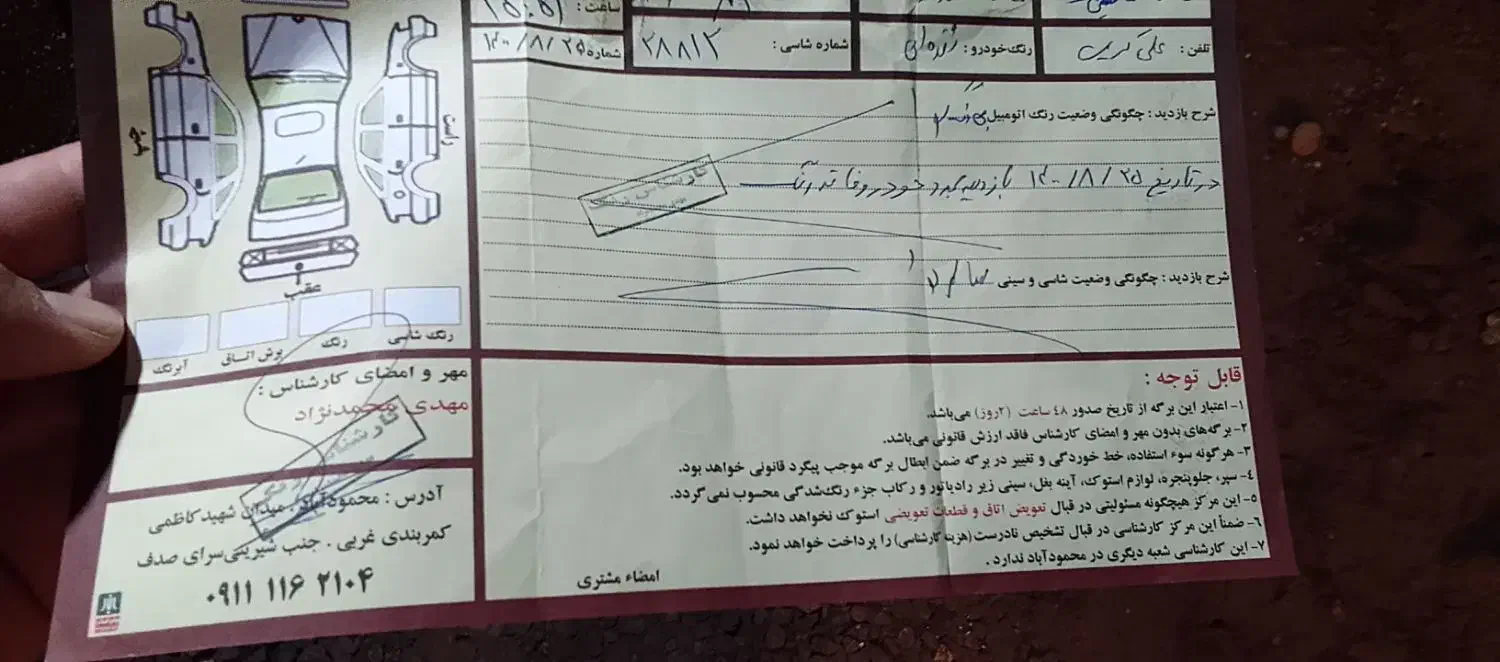 ساعت : ۱۵:۵۱
تلفن : علی کریمی
رنگ خودرو : نقره‌ای
شماره شاسی : ۲۸۸۱۲
شماره ۱۴۰۰/۸/۲۵
چپ
راست
عقب
رنگ شاسی
رنگ
برش اتاق
آبرنگ
شرح بازدید : چگونگی وضعیت رنگ اتومبیل
در تاریخ ۱۴۰۰/۸/۲۵ بازدید خودرو فاقد رنگ
کارشناسی رنگ
شرح بازدید : چگونگی وضعیت شاسی و سینی سالم
مهر و امضای کارشناس :
مهدی محمدنژاد
آدرس : محمودآباد . میدان شهید کاظمی
کمربندی غربی . جنب شیرینی‌سرای صدف
۰۹۱۱ ۱۱۶ ۲۱۰۴
قابل توجه :
۱- اعتبار این برگه از تاریخ صدور ۴۸ ساعت (۲روز) می‌باشد.
۲- برگه‌های بدون مهر و امضای کارشناس فاقد ارزش قانونی می‌باشد.
۳- هرگونه سوء استفاده، خط خوردگی و تغییر در برگه ضمن ابطال برگه موجب پیگرد قانونی خواهد بود.
۴- سپر، جلوپنجره، لوازم استوک، آینه بغل، سینی زیر رادیاتور و رکاب جزء رنگ‌شدگی محسوب نمی‌گردد.
۵- این مرکز هیچگونه مسئولیتی در قبال تعویض اتاق و قطعات تعویضی استوک نخواهد داشت.
۶- ضمناً این مرکز کارشناسی در قبال تشخیص نادرست (هزینه کارشناسی) را پرداخت خواهد نمود.
۷- این کارشناسی شعبه دیگری در محمودآباد ندارد .
امضاء مشتری